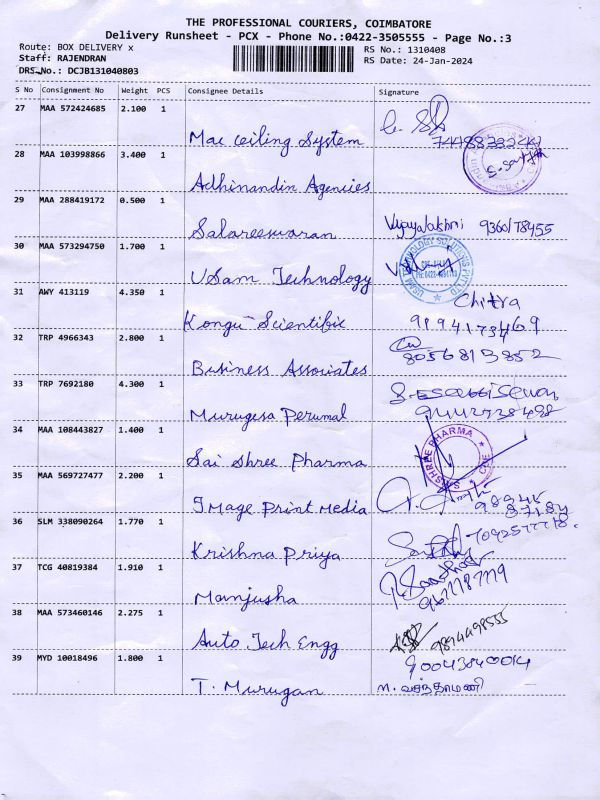 THE PROFESSIONAL COURIERS, COIMBATORE
Delivery Runsheet - PCX - Phone No.:0422-3505555 - Page No.:3
Route: BOX DELIVERY x
RS No.: 1310408
Staff: RAJENDRAN
RS Date: 24-Jan-2024
DRS No.: DCJB131040803
S No Consignment No Weight PCS Consignee Details Signature
27 MAA 572424685 2.100 1
Mac ceiling System
28 MAA 103998866 3.400 1
Adhinandin Agencies
29 MAA 288419172 0.500 1
Salareeswaran Vijayalakhmi 9360178455
30 MAA 573294750 1.700 1
USam Technology
31 AWY 413119 4.350 1
Chitra
Kongu Scientific 9194173469
32 TRP 4966343 2.800 1
Business Associates 8056813852
33 TRP 7692180 4.300 1
Murugesa Perumal
34 MAA 108443827 1.400 1
SHREE PHARMA
Sai Shree Pharma
35 MAA 569727477 2.200 1
Image Print Media
36 SLM 338090264 1.770 1
Krishna Priya
37 TCG 40819384 1.910 1
Manjusha
38 MAA 573460146 2.275 1
Auto Tech Engg 9894498555
39 MYD 10018496 1.800 1
90043840014
T. Murugan M. வசந்தாமணி